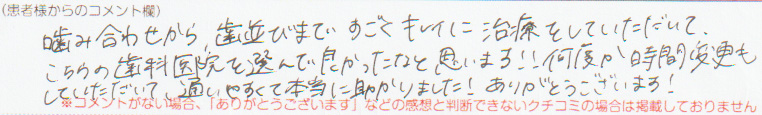 (患者様からのコメント欄)
噛み合わせから、歯並びまですごくキレイに治療をしていただいて、
こちらの歯科医院を選んで良かったなと思います!!何度か時間変更も
していただいて、通いやすくて本当に助かりました!ありがとうございます!
※コメントがない場合、「ありがとうございます」などの感想と判断できないクチコミの場合は掲載しておりません